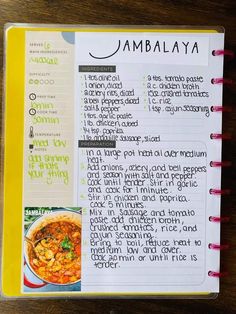 JAMBALAYA
SERVES 6
MAIN INGREDIENTS
DIFFICULTY
PREP TIME
10min
COOK TIME
30min
TEMPERATURE
med low
add shrimp
if that's
your
thing
INGREDIENTS
1 tbs olive oil
1 onion, diced
2 celery ribs, diced
2 bell peppers, diced
salt & pepper
1 tbs garlic paste
1 lb. chicken
1/4 tsp. paprika
1 lb. andouille sausage, sliced
2 tbs. tomato paste
2 c. chicken broth
15oz crushed tomatoes
1 c. rice
1 tsp. cajun seasoning
PREPARATION
In a large pot heat oil over medium
heat.
Add onions, celery, and bell peppers
and season with salt and pepper.
Cook until tender. Stir in garlic
and cook for 1 minute.
Stir in chicken and paprika.
Cook 5 minutes.
Mix in sausage and tomato
paste. add chicken broth,
crushed tomatoes, rice, and
cajun seasoning.
Bring to boil, reduce heat to
medium low and cover.
Cook 20 min or until rice is
tender.
JAMBALAYA